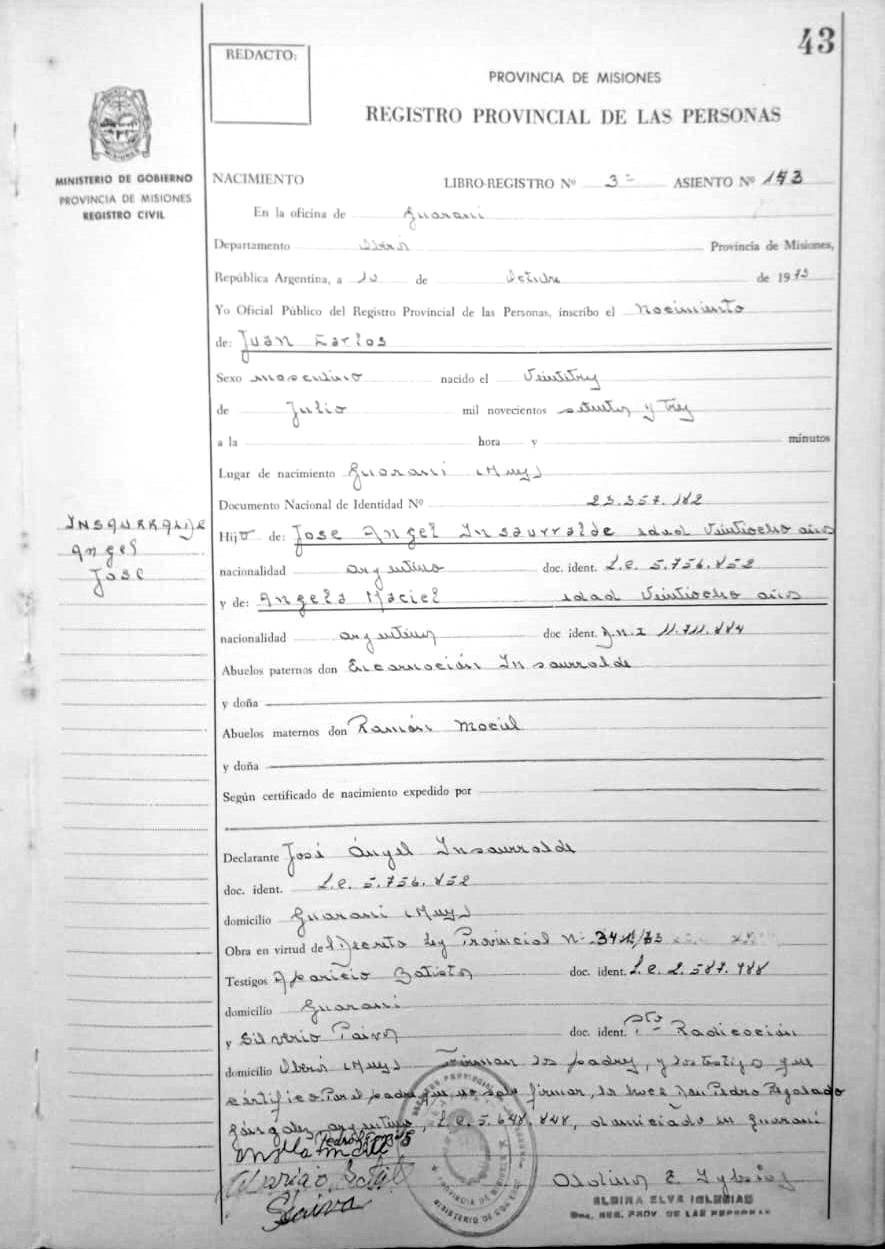 43
REDACTO:
PROVINCIA DE MISIONES
REGISTRO PROVINCIAL DE LAS PERSONAS
MINISTERIO DE GOBIERNO
PROVINCIA DE MISIONES
REGISTRO CIVIL
NACIMIENTO LIBRO-REGISTRO Nº 3º ASIENTO Nº 143
En la oficina de Guaraní
Departamento Oberá Provincia de Misiones,
República Argentina, a 10 de Octubre de 1973
Yo Oficial Público del Registro Provincial de las Personas, inscribo el Nacimiento
de: Juan Carlos
Sexo masculino nacido el Veintitrés
de Julio mil novecientos setenta y tres
a la hora y minutos
Lugar de nacimiento Guaraní (Mnes)
Documento Nacional de Identidad Nº 23.357.182
INSAURRALDE
Angel
José
Hijo de: Jose Angel Insaurralde edad Veintiocho años
nacionalidad argentino doc. ident. L.E. 5.756.852
y de: Angela Maciel edad Veintiocho años
nacionalidad argentina doc ident. D.N.I 11.711.884
Abuelos paternos don Encarnación Insaurralde
y doña
Abuelos maternos don Ramón Maciel
y doña
Según certificado de nacimiento expedido por
Declarante José Ángel Insaurralde
doc. ident. L.E. 5.756.852
domicilio Guaraní (Mnes)
Obra en virtud de Decreto Ley Provincial Nº
Testigos Aparicio Batista doc. ident. L.E. 2.587.988
domicilio Guaraní
y Silverio Paiva doc. ident. Radicación
domicilio Oberá (Mnes) Firman los padres, y los testigos que
certifico Por el padre que no sabe firmar, lo hace don Pedro Regalado
argentino, L.E. 5.648.848, domiciliado en Guaraní
Paiva
ELBIRA ELVA IGLESIAS
REG. PROV. DE LAS PERSONAS